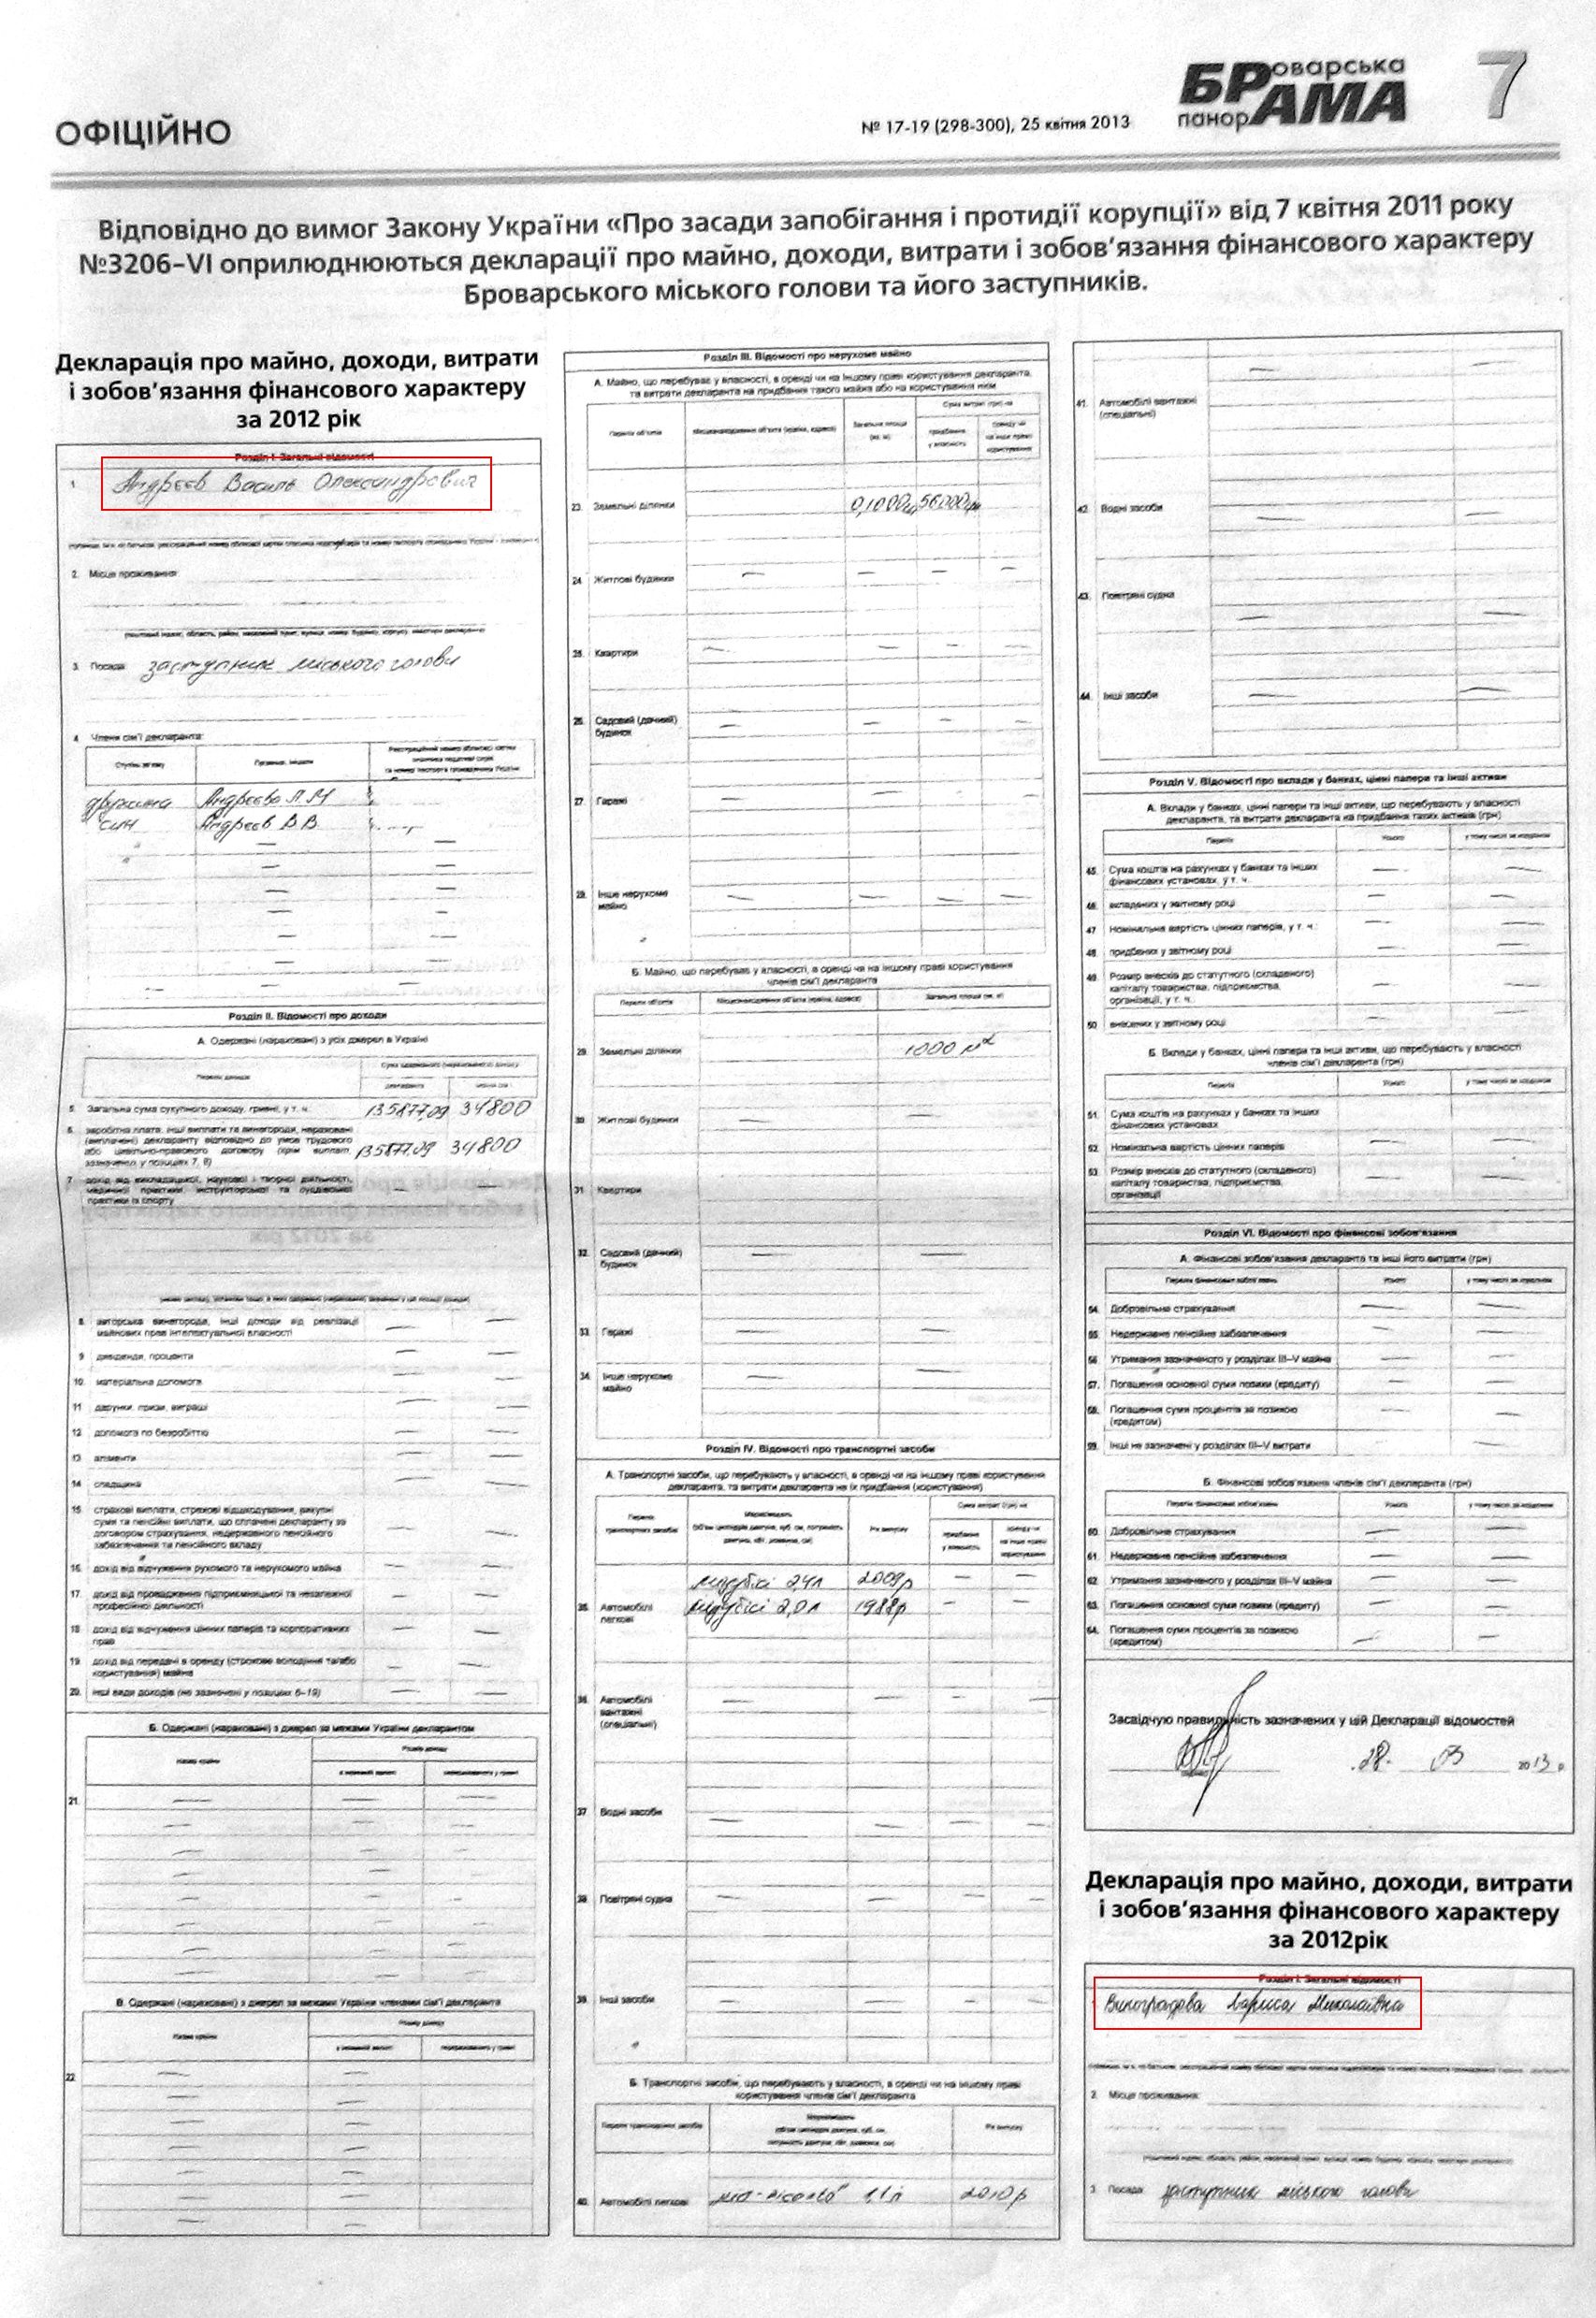 ОФІЦІЙНО
№ 17-19 (298-300), 25 квітня 2013
БРоварська
панорАМА
7
Відповідно до вимог Закону України «Про засади запобігання і протидії корупції» від 7 квітня 2011 року
№3206–VI оприлюднюються декларації про майно, доходи, витрати і зобов’язання фінансового характеру
Броварського міського голови та його заступників.
Декларація про майно, доходи, витрати
і зобов’язання фінансового характеру
за 2012 рік
Розділ I. Загальні відомості
1. Андрєєв Василь Олександрович
2. Місце проживання:
3. Посада: заступник міського голови
4. Члени сім'ї декларанта:
Ступінь зв'язку
дружина Андрєєва Л М
син Андрєєв В В
Розділ II. Відомості про доходи
А. Одержані (нараховані) з усіх джерел в Україні
5. Загальна сума сукупного доходу, гривні, у т. ч. 135877,09 34800
6. заробітна плата, інші виплати та винагороди, нараховані
(виплачені) декларанту відповідно до умов трудового
або цивільно-правового договору (крім виплат,
зазначених у позиціях 7, 8) 135877,09 34800
7. дохід від викладацької, наукової і творчої діяльності,
медичної практики, інструкторської та суддівської
практики із спорту
8. авторська винагорода, інші доходи від реалізації
майнових прав інтелектуальної власності
9. дивіденди, проценти
10. матеріальна допомога
11. дарунки, призи, виграші
12. допомога по безробіттю
13. аліменти
14. спадщина
15. страхові виплати, страхові відшкодування, викупні
суми та пенсійні виплати, що сплачені декларанту за
договором страхування, недержавного пенсійного
забезпечення та пенсійного вкладу
16. дохід від відчуження рухомого та нерухомого майна
17. дохід від провадження підприємницької та незалежної
професійної діяльності
18. дохід від відчуження цінних паперів та корпоративних
прав
19. дохід від передачі в оренду (строкове володіння та/або
користування) майна
20. інші види доходів (не зазначені у позиціях 6–19)
Б. Одержані (нараховані) з джерел за межами України декларантом
Назва країни
Розмір доходу
21.
В. Одержані (нараховані) з джерел за межами України членами сім'ї декларанта
Назва країни
Розмір доходу
22.
Розділ III. Відомості про нерухоме майно
А. Майно, що перебуває у власності, в оренді чи на іншому праві користування декларанта,
та витрати декларанта на придбання такого майна або на користування ним
Перелік об'єктів
23. Земельні ділянки 0,1000га 56000грн
24. Житлові будинки
25. Квартири
26. Садовий (дачний)
будинок
27. Гаражі
28. Інше нерухоме
майно
Б. Майно, що перебуває у власності, в оренді чи на іншому праві користування
членів сім'ї декларанта
29. Земельні ділянки 1000 м²
30. Житлові будинки
31. Квартири
32. Садовий (дачний)
будинок
33. Гаражі
34. Інше нерухоме
майно
Розділ IV. Відомості про транспортні засоби
А. Транспортні засоби, що перебувають у власності, в оренді чи на іншому праві користування
декларанта, та витрати декларанта на їх придбання (користування)
2,4л 2009р
35. Автомобілі
легкові 2,0л 1988р
36. Автомобілі
вантажні
(спеціальні)
37. Водні засоби
38. Повітряні судна
39. Інші засоби
Б. Транспортні засоби, що перебувають у власності, в оренді чи на іншому праві
користування членів сім'ї декларанта
40. Автомобілі легкові 1,1л 2010р
41. Автомобілі вантажні
(спеціальні)
42. Водні засоби
43. Повітряні судна
44. Інші засоби
Розділ V. Відомості про вклади у банках, цінні папери та інші активи
А. Вклади у банках, цінні папери та інші активи, що перебувають у власності
декларанта, та витрати декларанта на придбання таких активів (грн)
45. Сума коштів на рахунках у банках та інших
фінансових установах, у т. ч.:
46. вкладених у звітному році
47. Номінальна вартість цінних паперів, у т. ч.:
48. придбаних у звітному році
49. Розмір внесків до статутного (складеного)
капіталу товариства, підприємства,
організації, у т. ч.:
50. внесених у звітному році
Б. Вклади у банках, цінні папери та інші активи, що перебувають у власності
членів сім'ї декларанта (грн)
51. Сума коштів на рахунках у банках та інших
фінансових установах
52. Номінальна вартість цінних паперів
53. Розмір внесків до статутного (складеного)
капіталу товариства, підприємства,
організації
Розділ VI. Відомості про фінансові зобов'язання
А. Фінансові зобов'язання декларанта та інші його витрати (грн)
54. Добровільне страхування
55. Недержавне пенсійне забезпечення
56. Утримання зазначеного у розділах III–V майна
57. Погашення основної суми позики (кредиту)
58. Погашення суми процентів за позикою
(кредитом)
59. Інші не зазначені у розділах III–V витрати
Б. Фінансові зобов'язання членів сім'ї декларанта (грн)
60. Добровільне страхування
61. Недержавне пенсійне забезпечення
62. Утримання зазначеного у розділах III–V майна
63. Погашення основної суми позики (кредиту)
64. Погашення суми процентів за позикою
(кредитом)
Засвідчую правильність зазначених у цій Декларації відомостей
28. 03 2013 р.
Декларація про майно, доходи, витрати
і зобов’язання фінансового характеру
за 2012рік
Розділ I. Загальні відомості
Виноградова Лариса Миколаївна
2. Місце проживання:
3. Посада: заступник міського голови